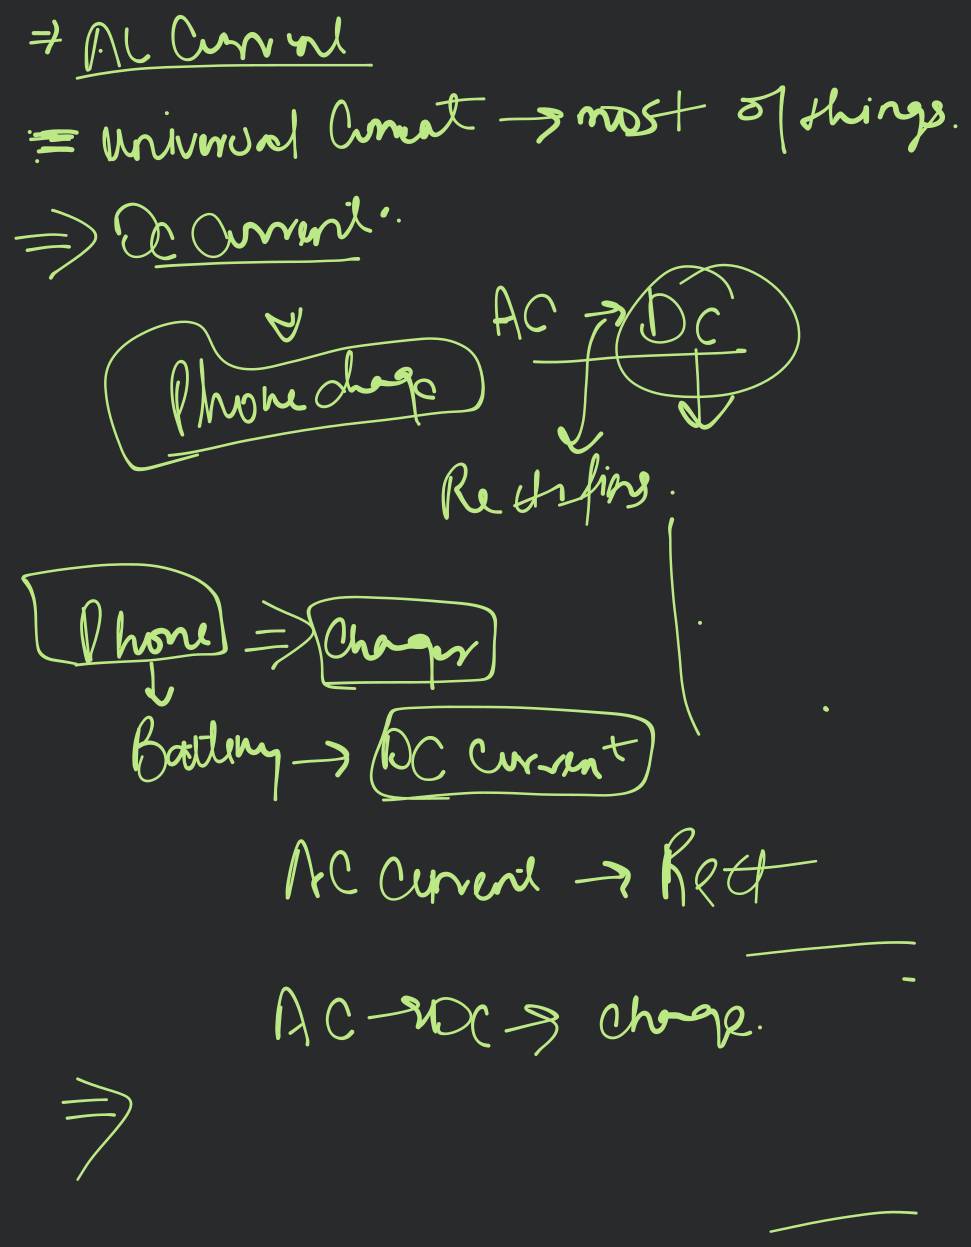 ⇒ AC Current
= Universal Current → most of things.
⇒ DC Current.
AC → DC
Phone charge
Rectifiers.
Phone ⇒ Charger
Battery → DC Current
AC Current → Rect
AC → DC → charge.
⇒